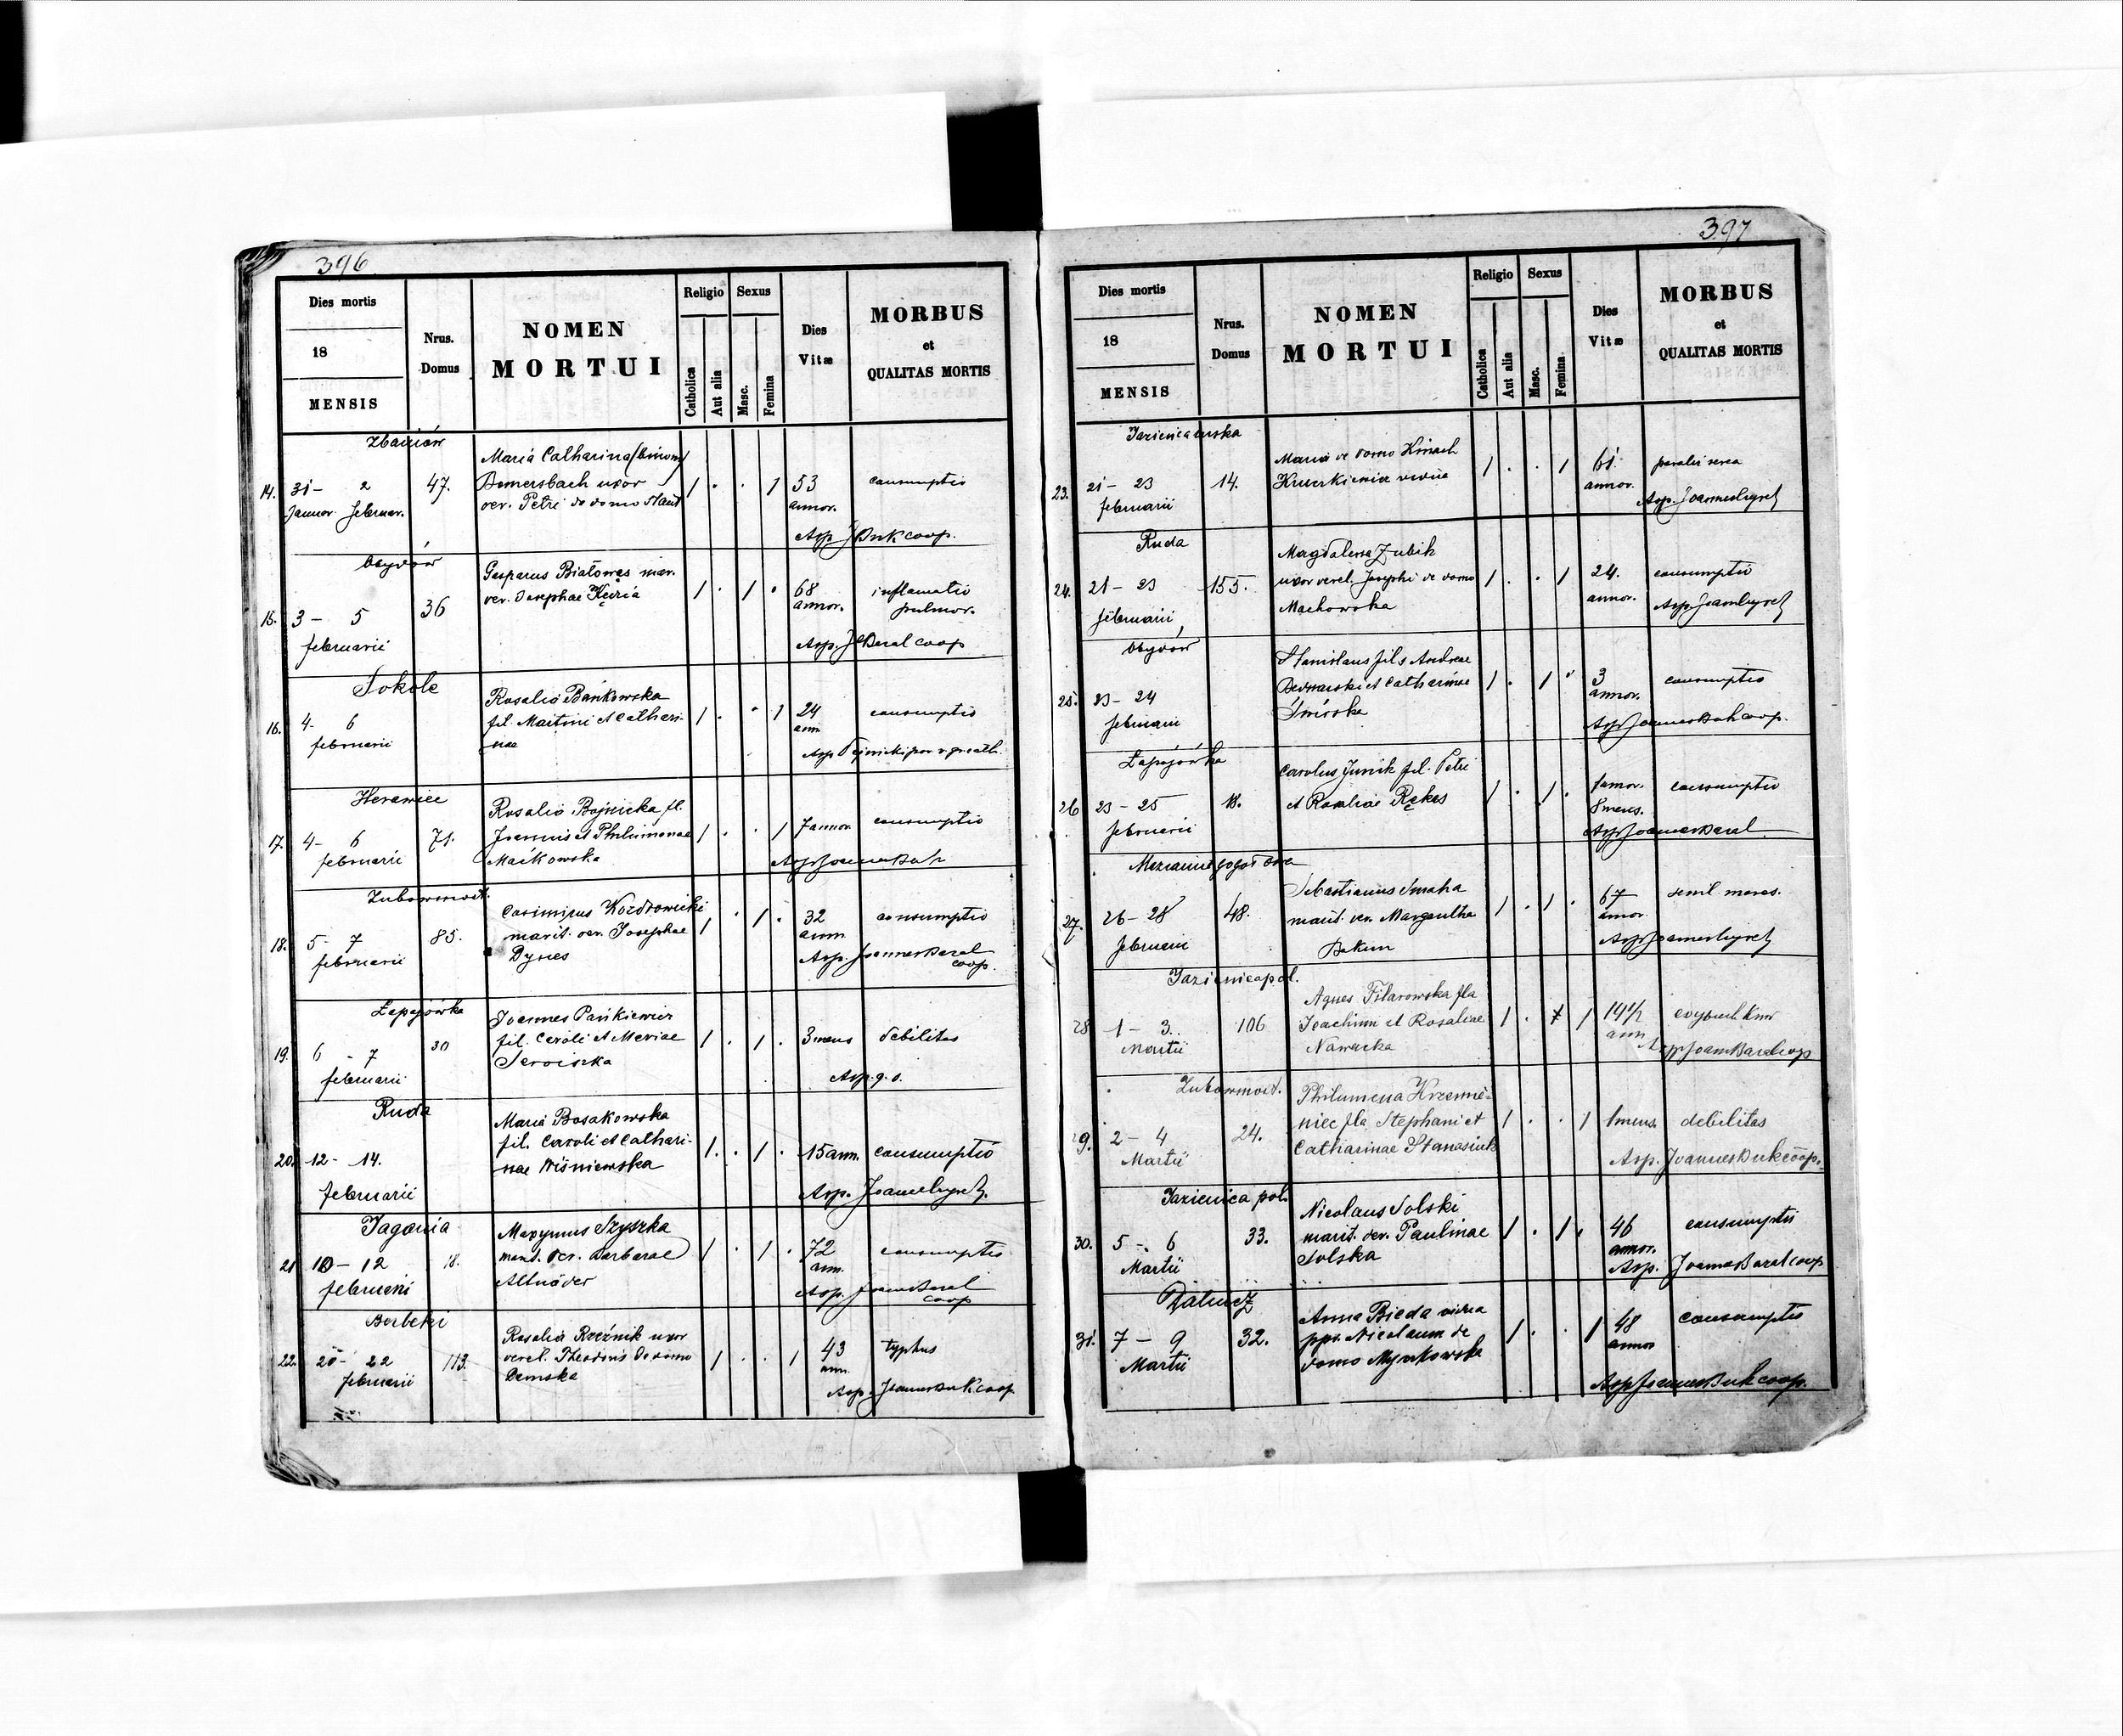 396
Dies mortis
18
MENSIS
Nrus.
Domus
NOMEN
MORTUI
Religio
Catholica
Aut alia
Sexus
Masc.
Femina
Dies
Vitæ
MORBUS
et
QUALITAS MORTIS
14. 31 - 2
Januar. Februar.
47.
Maria Catharina (binom)
Bemersbach uxor
ver. Petri de domo
1 . . 1
53
annor.
consumptio
Asp. J Buk coop.
Obydów
15. 3 - 5
februarii
36
Gasparus Białowąs mar.
ver. Josephae
1 . 1 .
68
annor.
inflamatio
pulmor.
Asp. J Baral coop
Sokole
16. 4 - 6
februarii
Rosalia Bańkowska
fil. Martini et Cathari-
nae
1 . . 1
24
ann
consumptio
Asp.
17. 4 - 6
februarii
71.
Rosalia Bojnicka fl.
Joannis et Philumenae
Maćkowska
1 . . 1
7 annor
consumptio
Asp Joannes Buk
Zubowmost.
18. 5 - 7
februarii
85.
Casimirus
marit. ver. Josephae
Dynes
1 . 1 .
32
annor
consumptio
Asp. Joannes Baral
coop.
Łapajówka
19. 6 - 7
februarii
30
Joannes Pańkiewicz
fil. Caroli et Mariae
1 . 1 .
3 mens
debilitas
Asp. q. s.
Ruda
20. 12 - 14.
februarii
Maria Bosakowska
fil. Caroli et Cathari-
nae Wiśniewska
1 . 1 .
15 ann.
consumptio
Asp. Joannes
Jagonia
21 10 - 12
februarii
18.
Maxymus Szyszka
marit. ver. Barbarae
1 . 1 .
72
ann.
consumptio
Asp. Joannes Baral
coop
Berbeki
22. 20 - 22
februarii
113.
Rosalia Rzeźnik uxor
verel. Theodori de domo
Demska
1 . . 1
43
ann.
typhus
Asp. Joannes Buk coop
397
Dies mortis
18
MENSIS
Nrus.
Domus
NOMEN
MORTUI
Religio
Catholica
Aut alia
Sexus
Masc.
Femina
Dies
Vitæ
MORBUS
et
QUALITAS MORTIS
Jazienica ruska
23. 21 - 23
februarii
14.
Maria de domo
vidua
1 . . 1
61
annor.
Asp. Joannes
Ruda
24. 21 - 23
februarii
155.
Magdalena Zubik
uxor verel. Josephi de domo
Machowska
1 . . 1
24.
annor.
consumptio
Asp. Joannes
Obydów
25. 23 - 24
februarii
Stanislaus fils Andreae
Bednarski et Catharinae
1 . 1 .
3
annor.
consumptio
Asp Joannes Buk coop.
Łapajówka
26 23 - 25
februarii
18.
Carolus Junik fil. Petri
et Rosaliae Rękas
1 . 1 .
1 annor.
8 mens.
consumptio
Asp Joannes Baral
27. 26 - 28
februarii
48.
Sebastianus Smaha
marit. ver. Margaritha
1 . 1 .
67
annor
senil. maras.
Asp Joannes
Jazienica pol.
28 1 - 3.
Martii
106
Agnes Filarowska fla
Joachimi et Rosaliae
Nawecka
1 . 1
14 1/2
ann.
Asp Joannes Baral coop
Zubowmost.
29. 2 - 4
Martii
24.
Philumena Krzemie-
niec fla Stephani et
Catharinae Stanasiuk
1 . . 1
1 mens.
debilitas
Asp. Joannes Buk coop.
Jazienica pol.
30. 5 - 6
Martii
33.
Nicolaus Solski
marit. ver. Paulinae
Solska
1 . 1 .
46
annor.
consumptio
Asp. Joannes Baral coop
31. 7 - 9
Martii
32.
Anna Bieda vidua
ppr. Nicolaum de
domo
1 . . 1
48
annor
consumptio
Asp Joannes Buk coop.